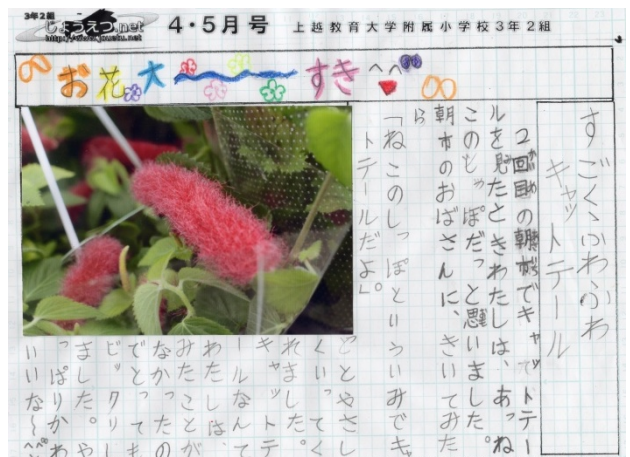 3年2組
じょうえつ.net
4・5月号
上越教育大学附属小学校3年2組
お花大〜すき
すごく、ふわふわ
キャットテール
2回目の朝市でキャットテー
ルを見たときわたしは、あっね
このしっぽだっと思いました。
朝市のおばさんに、きいてみた
ら
「ねこのしっぽといういみでキャ
トテールだよ」。
とやさし
くいってく
れました。
キャットテ
ールなんて
わたしは、
みたことが
なかったの
でとっても
ビックリし
ました。や
っぱりかわ
いいな〜